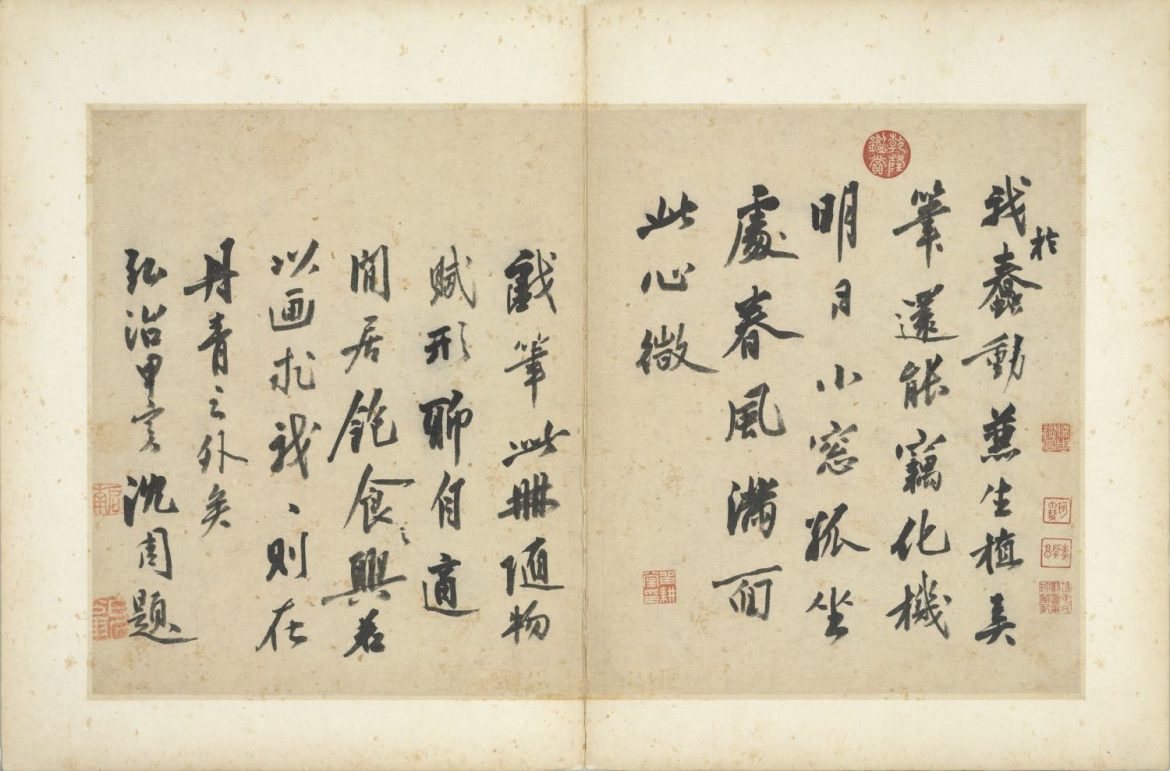 乾隆鑑賞
我於蠢動兼生植弄
筆還能竊化機
明日小窓孤坐
處春風滿面
此心微
戲筆此冊隨物
賦形聊自適
閒居飽食之興若
以画求我、則在
丹青之外矣
弘治甲寅沈周題